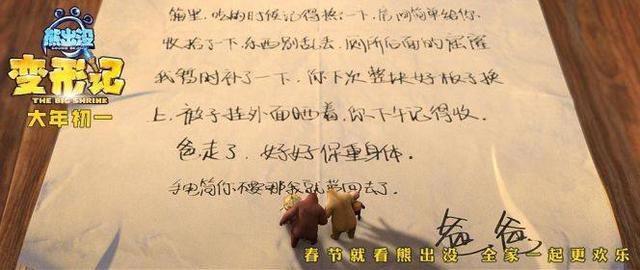 箱里,吃的时候记得热一下,房间简单给你
收拾了下,东西别乱丢,厕所后面的窟窿
我暂时补了一下,你下次整块好板子换
上,被子挂外面晒着,你下午记得收。
爸走了,好好保重身体。
手电筒你不要那我就带回去了。
爸爸
熊出没
变形记
THE BIG SHRINK
大年初一
春节就看熊出没 全家一起更欢乐